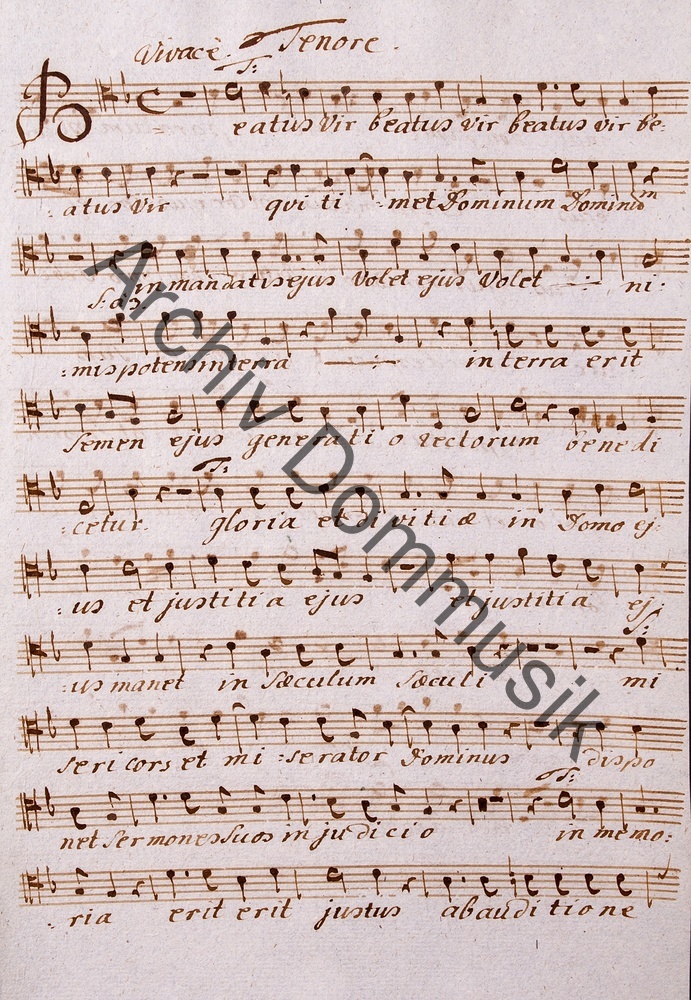 Vivacè. Tenore.
T:
Beatus vir beatus vir beatus vir be:
:atus vir qui ti :met Dominum Dominum
in mandatis ejus volet ejus volet ni:
S: as
:mis potens in terra in terra erit
semen ejus generati o rectorum bene di
T:
:cetur. gloria et di vitiæ in Domo ej:
:us et justitia ejus et justitia ej:
S:
:us manet in sæculum sæculi mi
seri cors et mi :serator Dominus dispo
T:
net sermones suos in judicio in memo:
:ria erit erit justus ab auditione
Archiv Dommusik